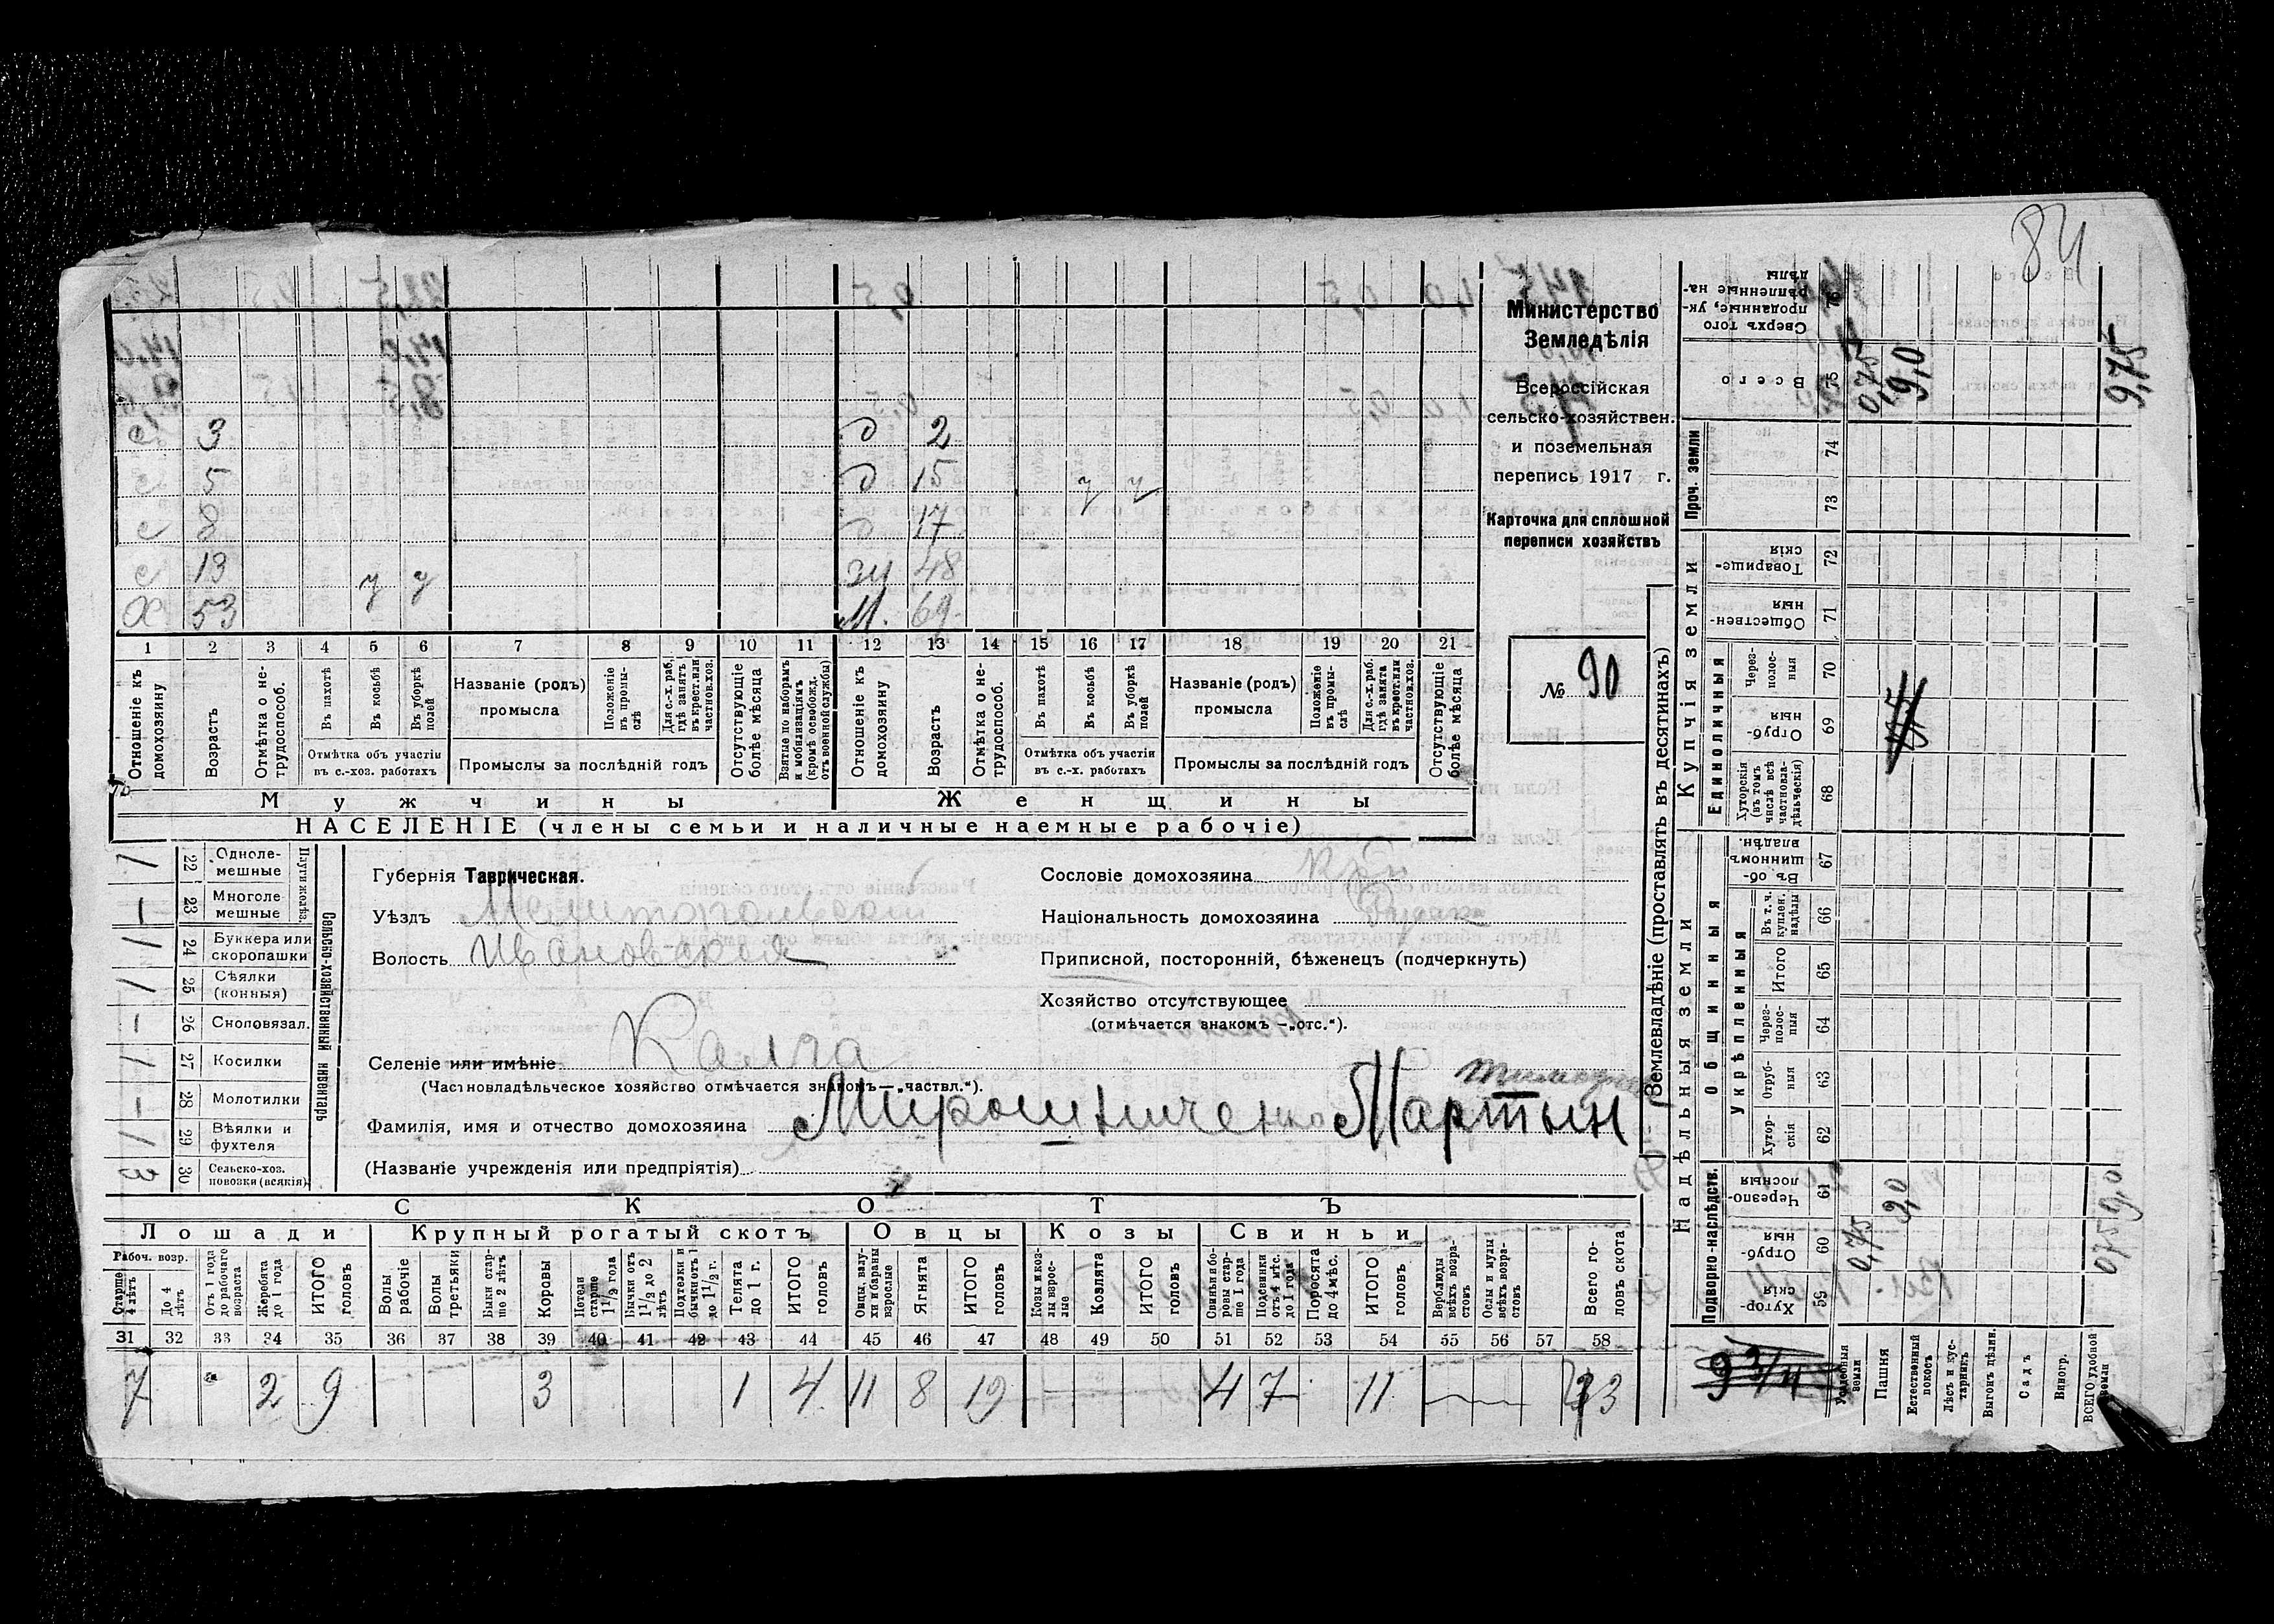 84
Министерство
Земледѣлія
Всероссійская
сельско-хозяйствен.
и поземельная
перепись 1917 г.
Карточка для сплошной
переписи хозяйствъ
№ 90
с 3 д 2
с 5 д 15 у у
с 8 д 17
с 13 у у ж 48
Х 53 М. 69
1 2 3 4 5 6 7 8 9 10 11 12 13 14 15 16 17 18 19 20 21
Отношеніе къ домохозяину
Возрастъ
Отмѣтка о не-трудоспособ.
Въ пахотѣ
Въ косьбѣ
Въ уборкѣ полей
Отмѣтка объ участіи въ с.-хоз. работахъ
Названіе (родъ) промысла
Положеніе въ промы-слѣ
Для с.-х. раб. гдѣ занятъ въ крест. или частнов. хоз.
Промыслы за послѣдній годъ
Отсутствующіе болѣе мѣсяца
Взятые по наборамъ и мобилизаціямъ (кромѣ освобожд. отъ военной службы)
Отношеніе къ домохозяину
Возрастъ
Отмѣтка о не-трудоспособ.
Въ пахотѣ
Въ косьбѣ
Въ уборкѣ полей
Отмѣтка объ участіи въ с.-х. работахъ
Названіе (родъ) промысла
Положеніе въ промы-слѣ
Для с.-х. раб. гдѣ занята въ крест. или частнов. хоз.
Промыслы за послѣдній годъ
Отсутствующіе болѣе мѣсяца
Мужчины Женщины
НАСЕЛЕНІЕ (члены семьи и наличные наемные рабочіе)
Сельско-хозяйственный инвентарь
22 Одноле-мешные 1
23 Многоле-мешные –
24 Буккера или скоропашки 1
25 Сѣялки (конныя) 1
26 Сноповязал. –
27 Косилки 1
28 Молотилки –
29 Вѣялки и фухтеля 1
30 Сельско-хоз. повозки (всякія) 3
Губернія Таврическая.
Уѣздъ Мелитопольскій
Волость Ивановская
Селеніе или имѣніе Калга
(Частновладѣльческое хозяйство отмѣчается знакомъ—„частвл.“).
Сословіе домохозяина
Національность домохозяина
Приписной, посторонній, бѣженецъ (подчеркнуть)
Хозяйство отсутствующее
(отмѣчается знакомъ —„отс.“).
Фамилія, имя и отчество домохозяина Мирошниченко Мартын
(Названіе учрежденія или предпріятія)
СКОТЪ
Лошади Крупный рогатый скотъ Овцы Козы Свиньи
Рабоч. возр.
Старше 4 лѣтъ
До 4 лѣтъ
Отъ 1 года до рабочаго возраста
Жеребята до 1 года
ИТОГО головъ
Волы рабочіе
Волы третьяки
Быки стар-ше 2 лѣтъ
Коровы
Нетели старше 1 1/2 года
Бычки отъ 1 1/2 до 2 лѣтъ
Подтелки и бычки отъ 1 до 1 1/2 г.
Телята до 1 г.
ИТОГО головъ
Овцы, валу-хи и бараны взрослые
Ягнята
ИТОГО головъ
Козы и коз-лы взрос-лые
Козлята
ИТОГО головъ
Свиньи и бо-ровы стар-ше 1 года
Подсвинки отъ 4 мѣс. до 1 года
Поросята до 4 мѣс.
ИТОГО головъ
Верблюды всѣхъ возра-стовъ
Ослы и мулы всѣхъ возра-стовъ
Всего го-ловъ скота
31 32 33 34 35 36 37 38 39 40 41 42 43 44 45 46 47 48 49 50 51 52 53 54 55 56 57 58
7 2 9 3 1 4 11 8 19 – 4 7 11
Землевладѣніе (проставлять въ десятинахъ)
Надѣльныя земли
Купчія земли
Проч. земли
Подворно-наслѣдств.
Общинныя
Укрѣпленныя
Единоличныя
59 Хутор-скія
60 Отруб-ныя
61 Черезпо-лосныя
62 Хутор-скія
63 Отруб-ныя
64 Через-полос-ныя
65 Итого
66 Въ т. ч. куплен. надѣлы
67 Въ об-щинномъ владѣн.
68 Хуторскія (въ томъ числѣ всѣ частновла-дѣльческія)
69 Отруб-ныя
70 Через-полос-ныя
71 Обществен-ныя
72 Товарище-скія
73
74
75 Всего
76 Сверхъ того проданные, ук-рѣпленные на-дѣлы
9 3/4
Усадебныя земли 0,75 0,75
Пашня 9,0 9,0
Естественный покосъ
Лѣсъ и кус-тарникъ
Выгонъ цѣлин.
Садъ
Виногр.
ВСЕГО удобной земли 0,75 9,0 9,75